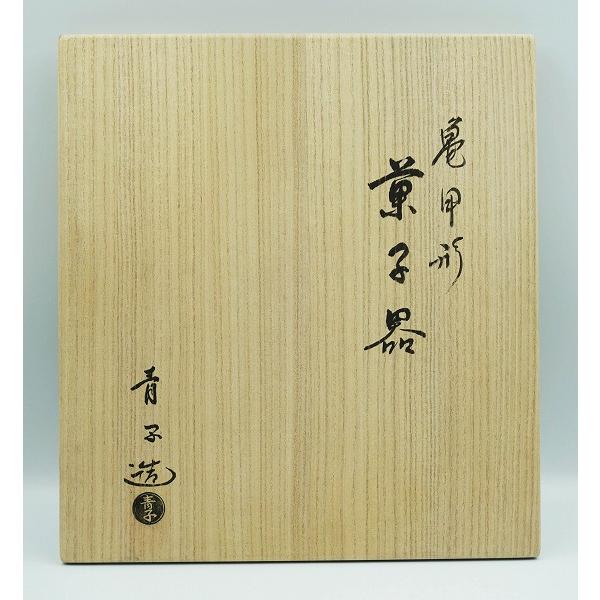 亀甲形
菓子器
青子造
青子